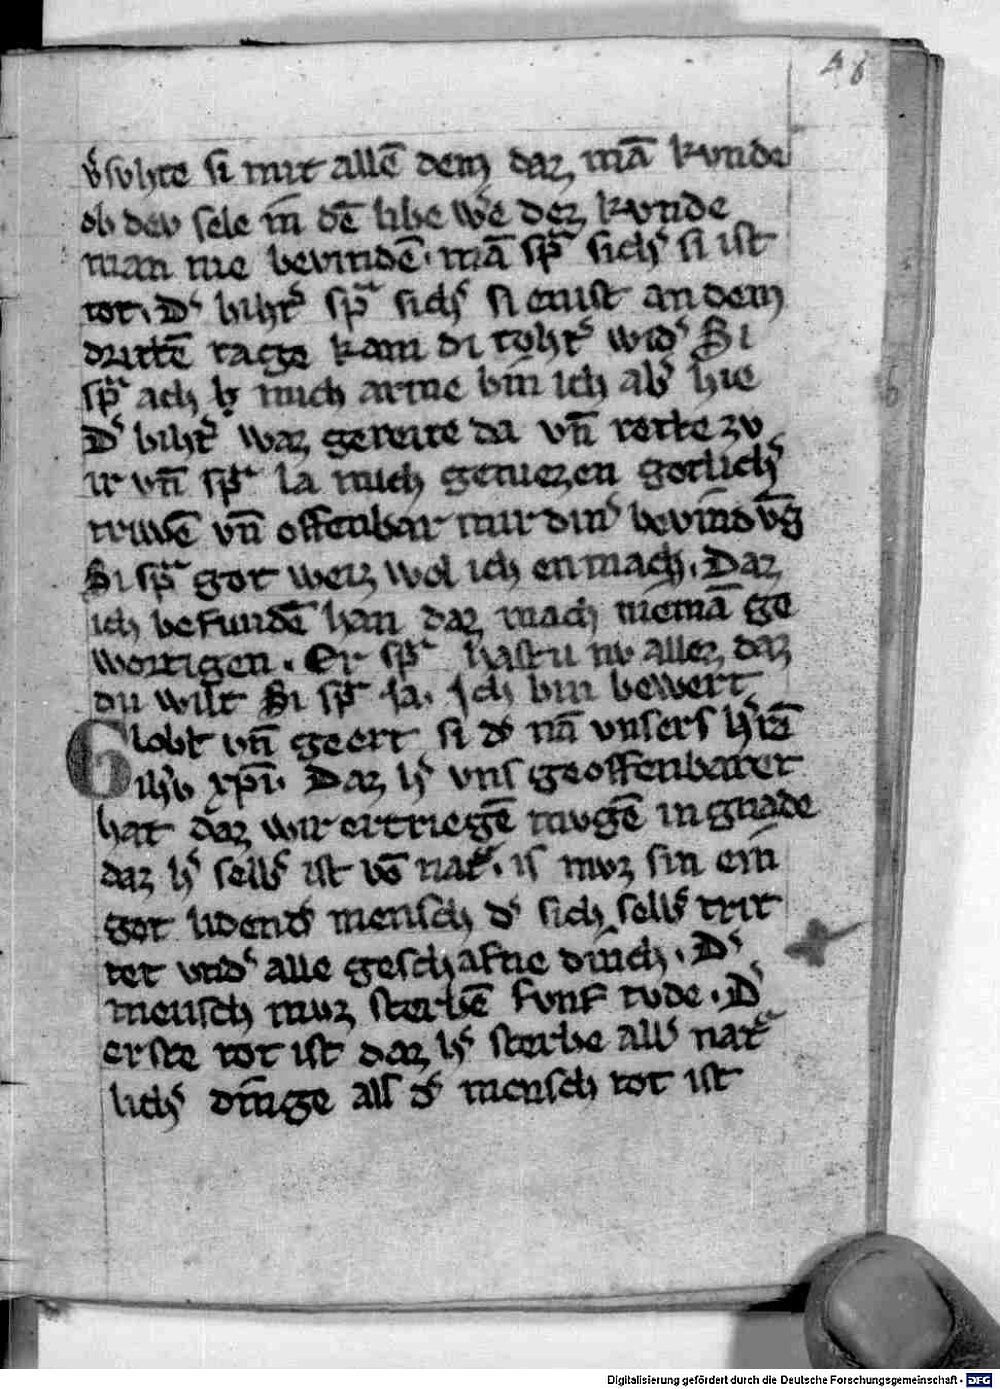 48
v̾suhte si mit allē dem daz mā kunde
ob deu sele in dē libe we̾ dez kunde
man nie bevindē. mā sp͛ch sich̾ si ist
tot. D̾ biht̾ sp͛ch sich̾ si enist an dem
drittē tage kam di toht̾ wid̾ Si
sp͛ch ach mich arme bin ich ab̾ hie
D̾ biht̾ waz gereite da vn̄ rette zv
ir vn̄ sp͛ch la mich geniezen gotlich̾
triwē vn̄ offenbar mir din̾ bevindvḡ
Si sp͛ch got weiz wol ich enmach. Daz
ich befundē han daz mach niemā ge
wortigen. Er sp͛ch hastu nv allez daz
du wilt Si sp͛ch ja. Ich bin bewert
Globt vn̄ geert si d̾ nā vnsers h̾rā
ihv̾ xp̄i. Daz h̾ vns geoffenbaret
hat daz wir ertriegē mvgē in gnade
daz h̾ selb̾ ist vō nat̾. is mvz sin ein
got lidend̾ mensch d̾ sich selb̾ trit
tet vnd̾ alle geschafne dinch. D̾
mensch mvz sterbē funf tode. D̾
erste tot ist daz h̾ sterbe all̾ nat̾
lich̾ dinge als d̾ mensch tot ist
Digitalisierung gefördert durch die Deutsche Forschungsgemeinschaft - DFG